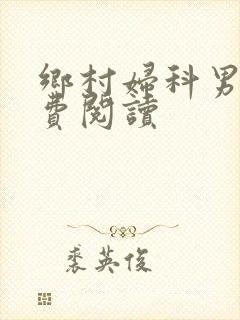 鄉村婦科男
費閱讀
裘英俊